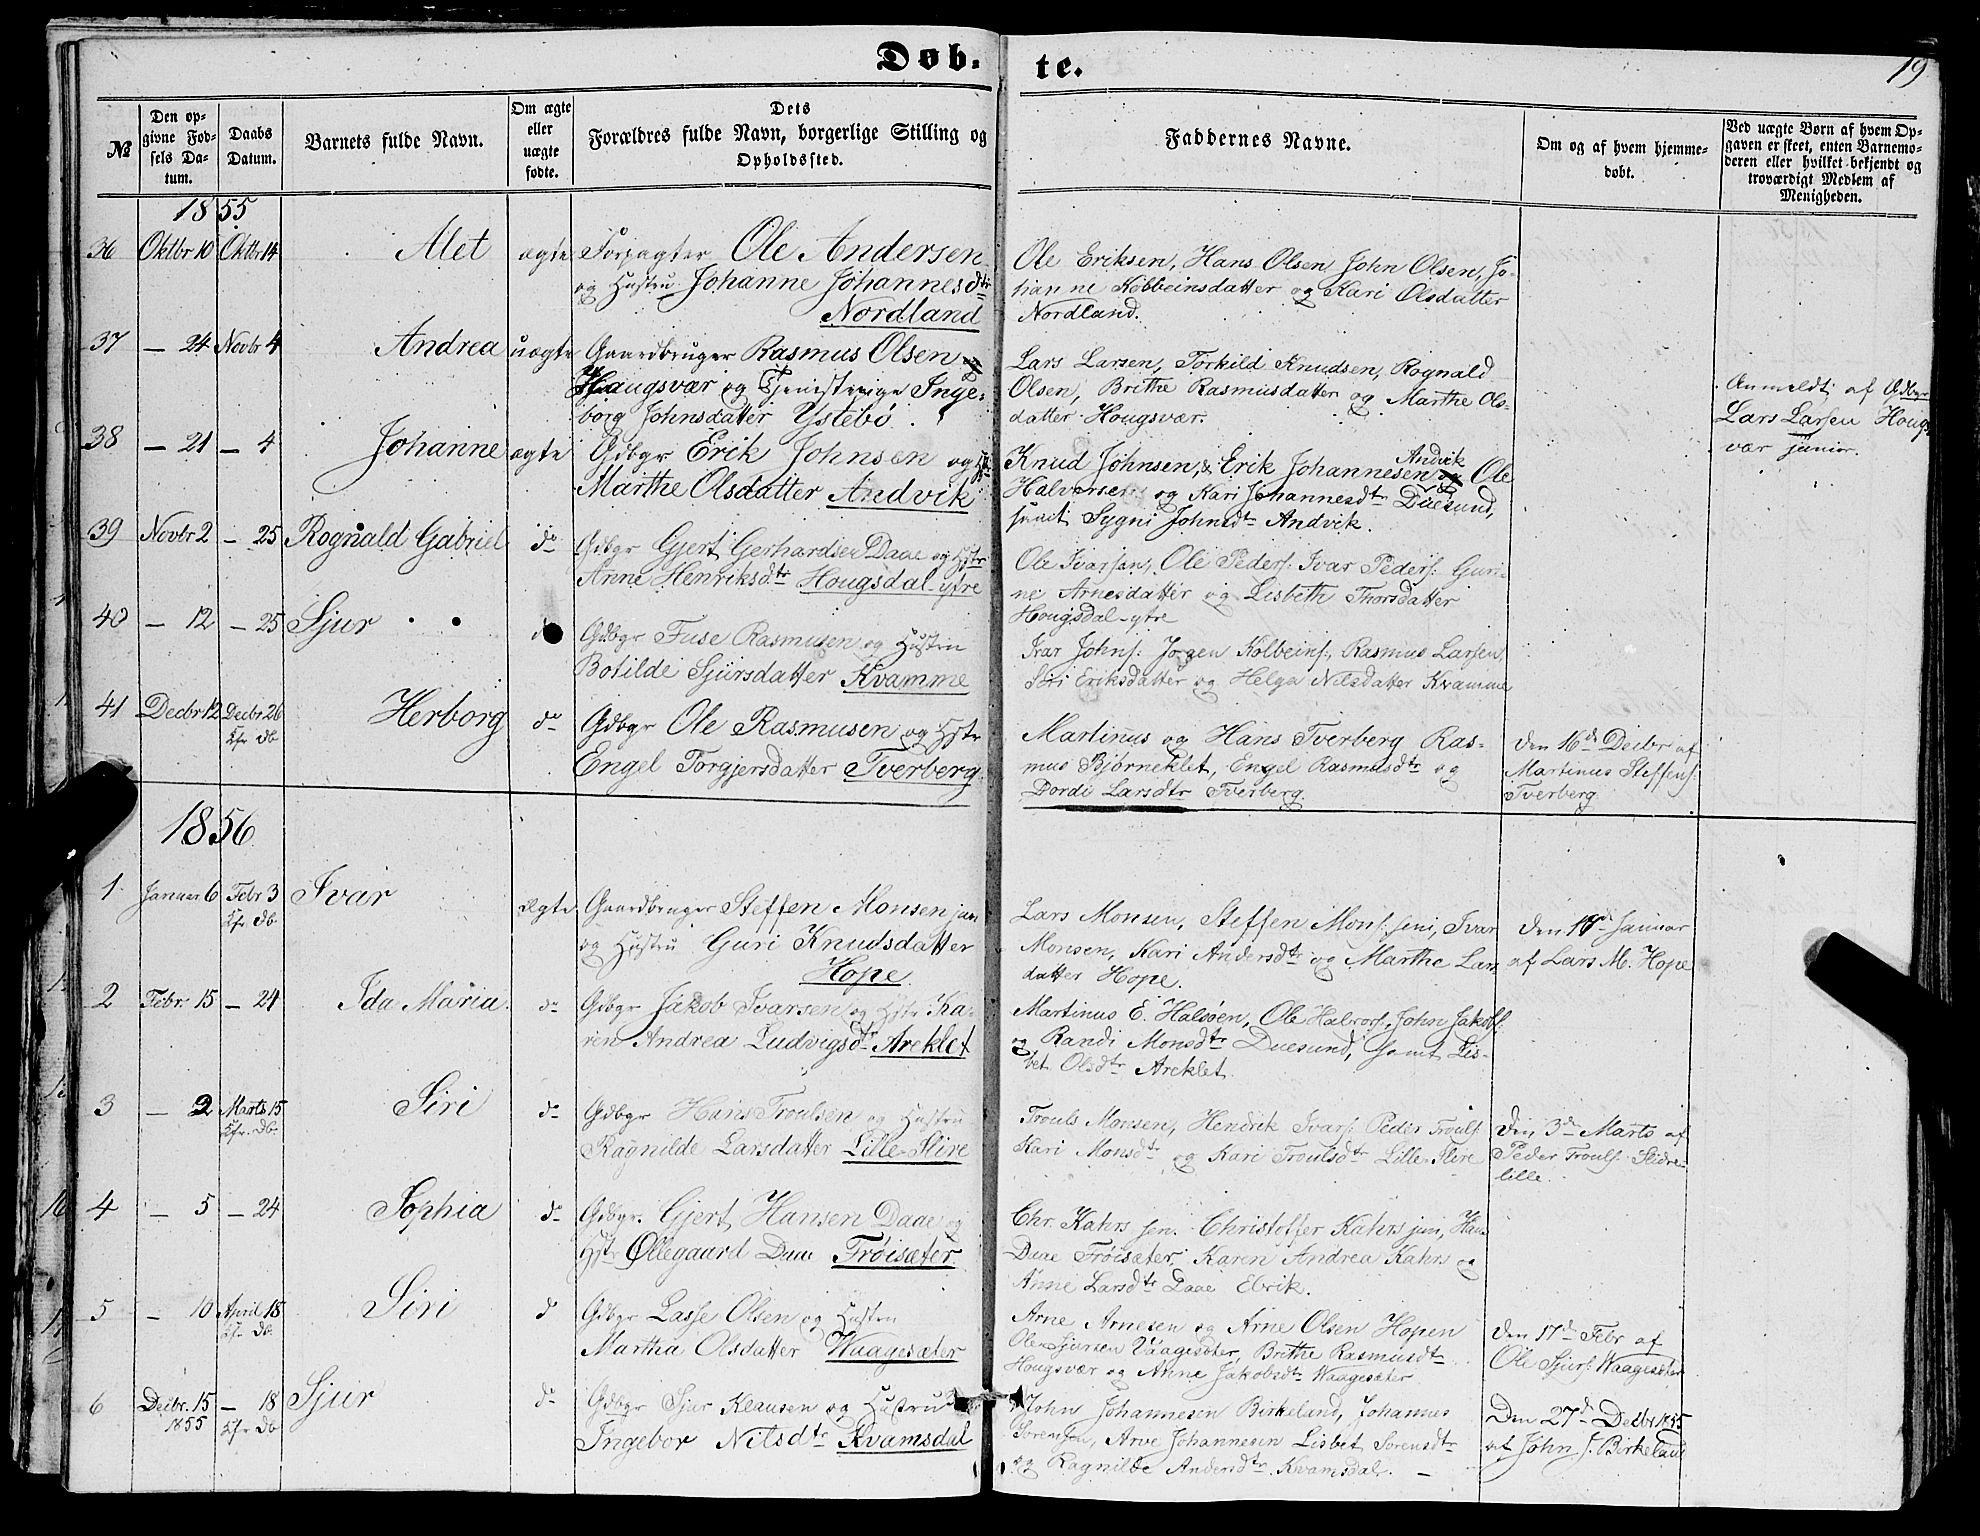 Døb-te.
19
№
Den opgivne Fødsels Datum.
Daabs Datum.
Barnets fulde Navn.
Om ægte eller uægte fødte.
Dets Forældres fulde Navn, borgerlige Stilling og Opholdssted.
Faddernes Navne.
Om og af hvem hjemmedøbt.
Ved uægte Børn af hvem Opgaven er skeet, enten Barnemoderen eller hvilket bekjendt og troværdigt Medlem af Menigheden.
1855
36 Oktbr 10 Oktbr 14 Alet ægte Forpagter Ole Andersen
og Hustru Johanne Johannesdtr
Nordland
Ole Eriksen, Hans Olsen John Olsen, Jo-
hanne Kobbeinsdatter og Kari Olsdatter
Nordland.
37 — 24 Novbr 4 Andrea uægte Gaardbruger Rasmus Olsen
Haugsvær og Tjenestepige Inge-
borg Johnsdatter Ystebö.
Lars Larsen, Torkild Knudsen, Rognald
Olsen, Brithe Rasmusdatter og Marthe Ols-
datter Hougsvær.
Anmeldt af Gdbgr
Lars Larsen Hougs-
vær junior.
38 — 21 — 4 Johanne ægte Gdbgr Erik Johnsen og
Marthe Olsdatter Andvik
Andvik
Knud Johnsen, Erik Johannesen Ole
Halvorsen og Kari Johannesdtr Duesund,
samt Sygni Johnsdtr Andvik.
39 Novbr 2 — 25 Rognald Gabriel do Gdbgr Gjert Gerhardsen Daae og Hstr
Anne Henriksdtr Hougsdal-ytre
Ole Ivarsen, Ole Peders: Ivar Peders: Guri-
ne Arnesdatter og Lisbeth Thorsdatter
Hougsdal-ytre
40 — 12 — 25 Sjur Gdbgr Fuse Rasmusen og Hustru
Botilde Sjursdatter Kvamme
Ivar Johns: Jørgen Kolbeins:, Rasmus Larsen,
Siri Eriksdatter og Helga Nilsdatter Kvamme
41 Decbr 12 Decbr 26 Herborg do Gdbgr Ole Rasmusen og Hstr
Kfr Db
Engel Torgjersdatter Tverberg.
Martinus og Hans Tverberg Ras-
mus Bjørneklet, Engel Rasmusdtr og
Dordi Larsdtr Tverberg.
Den 16de Decbr af
Martinus Steffens:
Tverberg
1856
1 Januar 6 Febr 3 Ivar ægte Gaardbruger Steffen Monsen jun
Kfr Db
og Hustru Guri Knudsdatter
Hope.
Lars Monsen, Steffen Mons: seni, Ivar
Monsen, Kari Andersdtr og Marthe Lars
datter Hope.
Januar
af Lars M. Hope
2 Febr. 15 — 24 Ida Maria. do Gdbgr Jakob Ivarsen og Hstr Ka-
ren Andrea Ludvigsdtr Areklet
Martinus E. Halsøen, Ole Halvors:, John Jakobs:
og Randi Monsdtr Duesund, samt Lis-
bet Olsdtr Areklet.
3 — 2 Marts 15 Siri do Gdbgr Hans Troulsen og Hustru
Kfr. Db.
Ragnilde Larsdatter Lille-Slire
Trouls Monsen, Hendrik Ivars: Peder Trouls:
Kari Monsdtr og Kari Troulsdtr Lille-Slire
Den 3de Marts af
Peder Trouls: Slidre-
lille.
4 — 5 — 24 Sophia do Gdbgr. Gjert Hansen Daae og
Hstr Ollegaard Daae Trøisæter.
Chr. Kahrs sen. Christoffer Kahrs jun, Hans
Daae Trøisæter, Karen Andrea Kahrs og
Anne Larsdtr Daae Ebrik.
5 — 10 April 18 Siri d Gdbgr Lasse Olsen og Hustru
Kfr Db.
Martha Olsdatter Waagesæter
Arne Arnesen og Arne Olsen Hopen
Ole Sjursen Vaagesæter, Brithe Rasmusdtr
Hougsvær og Anne Jakobsdtr Waagesæter
Den 17de Febr af
Ole Sjurs: Waagesæter
6 Decbr. 15 — 18 Sjur do Gdbgr Sjur Klausen og Hustru
1855 Kfr Db
Ingebor Nilsdtr Kvamsdal
John Johannesen Birkeland, Johannes
Sorensen, Arve Johannesen Lisbet Sorensdtr
og Ragnilde Andersdtr Kvamsdal. —
Den 27de Decbr 1855
af John J. Birkeland